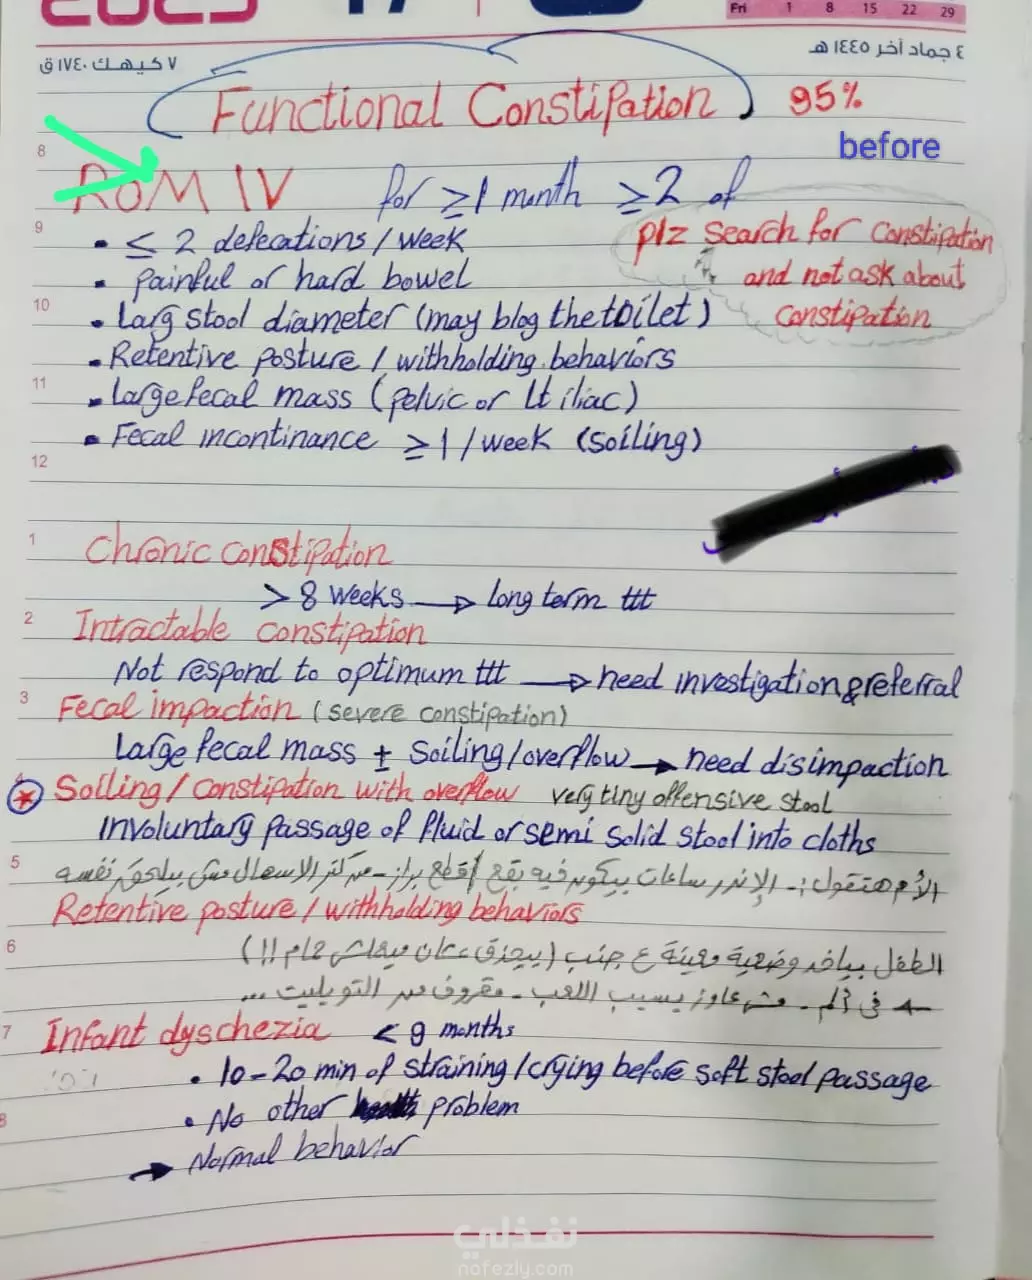 2023 17
Fri 1 8 15 22 29
٧ كيهك ١٧٤٠ ق
٤ جماد آخر ١٤٤٥ هـ
Functional Constipation 95%
before
8
ROM IV for ≥1 month ≥2 of
9
• ≤ 2 defecations / week
plz search for constipation
and not ask about
constipation
• Painful or hard bowel
10
• Larg stool diameter (may blog the toilet)
• Retentive posture / withholding behaviors
11
• Large fecal mass (pelvic or Lt iliac)
• Fecal incontinance ≥1 / week (soiling)
12
1
Chronic constipation
> 8 weeks → long term ttt
2
Intractable constipation
Not respond to optimum ttt → need investigation & referral
3
Fecal impaction (severe constipation)
Large fecal mass ± Soiling / overflow → need disimpaction
4
Soiling / constipation with overflow very tiny offensive stool
Involuntary passage of fluid or semi solid stool into cloths
5
الأم هتقول :- الإندر ساعات بيكون فيه بقع / قطع براز - من كتر الاسهال مش بيلحق نفسه
Retentive posture / withholding behaviors
6
الطفل بياخد وضعية معينة ع جنب (بيحزق عشان ميعملش حمام !!)
في ألم - مش عاوز يسيب اللعب - مقروف من التويليت ...
7
Infant dyschezia < 9 months
• 10-20 min of straining / crying before soft stool passage
8
• No other problem
→ Normal behavior
نفذلي
nafezly.com